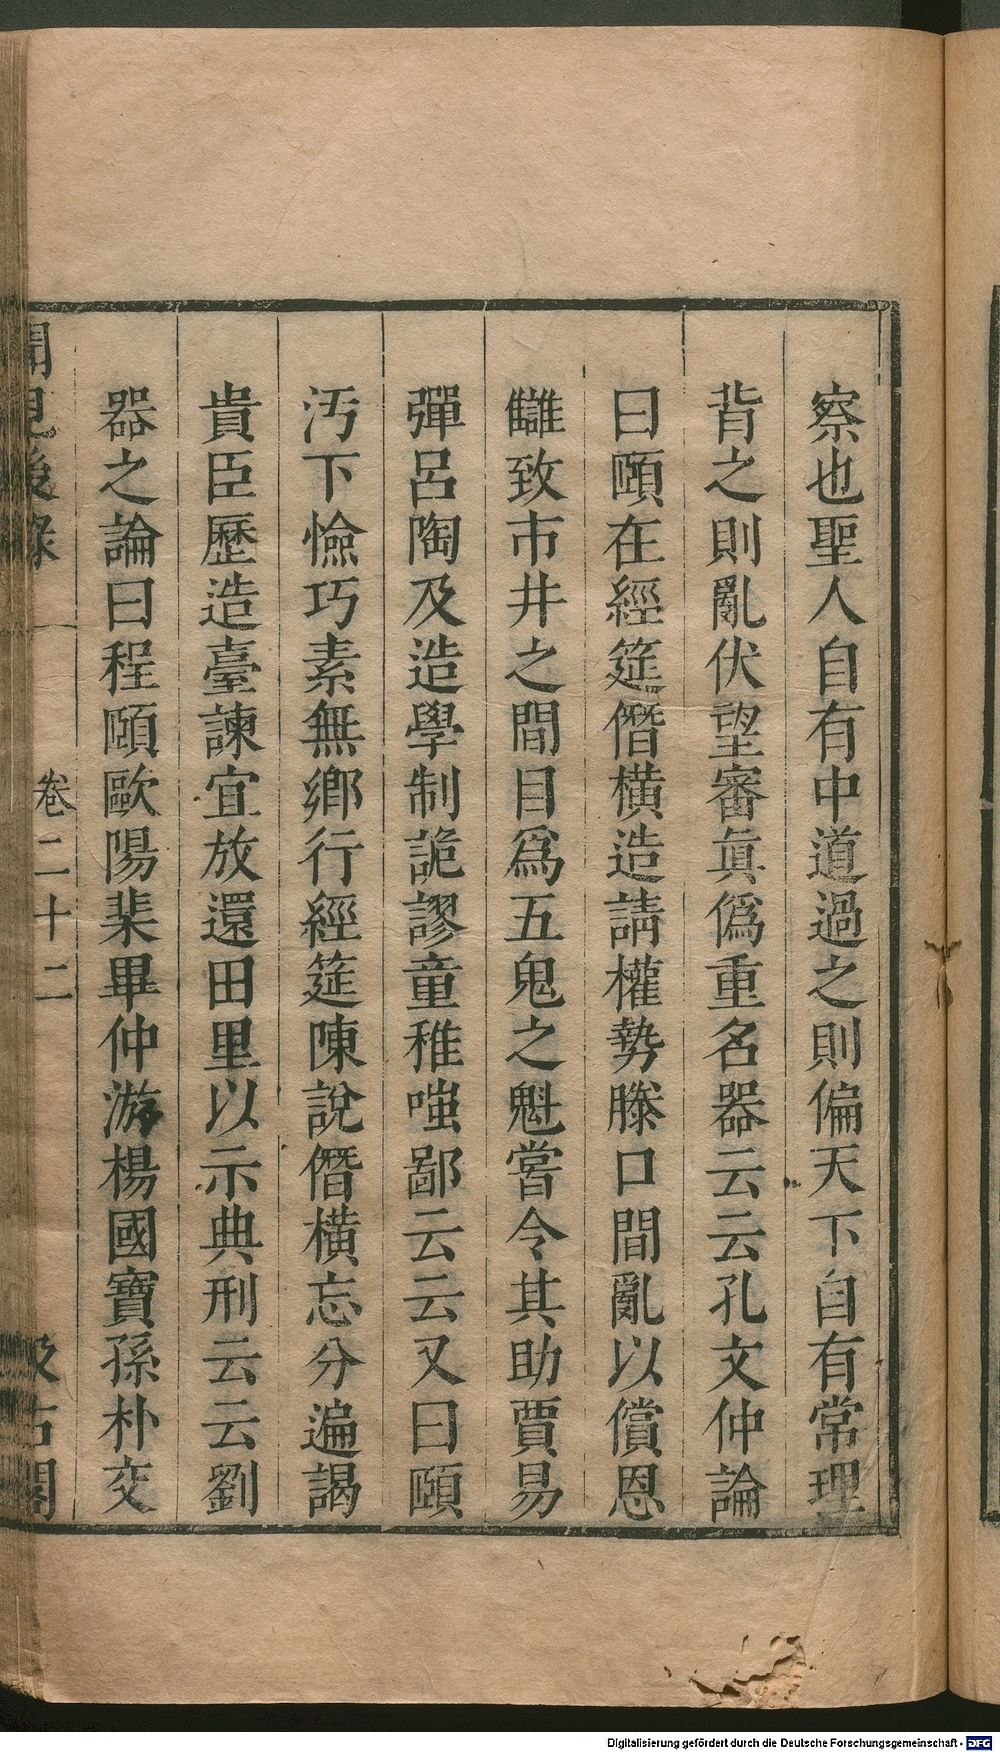 察也聖人自有中道過之則偏天下自有常理
背之則亂伏望審眞僞重名器云云孔文仲論
曰頤在經筵僭橫造請權勢滕口間亂以償恩
讎致市井之間目爲五鬼之魁嘗令其助賈易
彈呂陶及造學制詭謬童稚嗤鄙云云又曰頤
汚下憸巧素無鄉行經筵陳說僭橫忘分遍謁
貴臣歷造臺諫宜放還田里以示典刑云云劉
器之論曰程頤歐陽棐畢仲游楊國寶孫朴交
聞見後錄 卷二十二 汲古閣
Digitalisierung gefördert durch die Deutsche Forschungsgemeinschaft - DFG